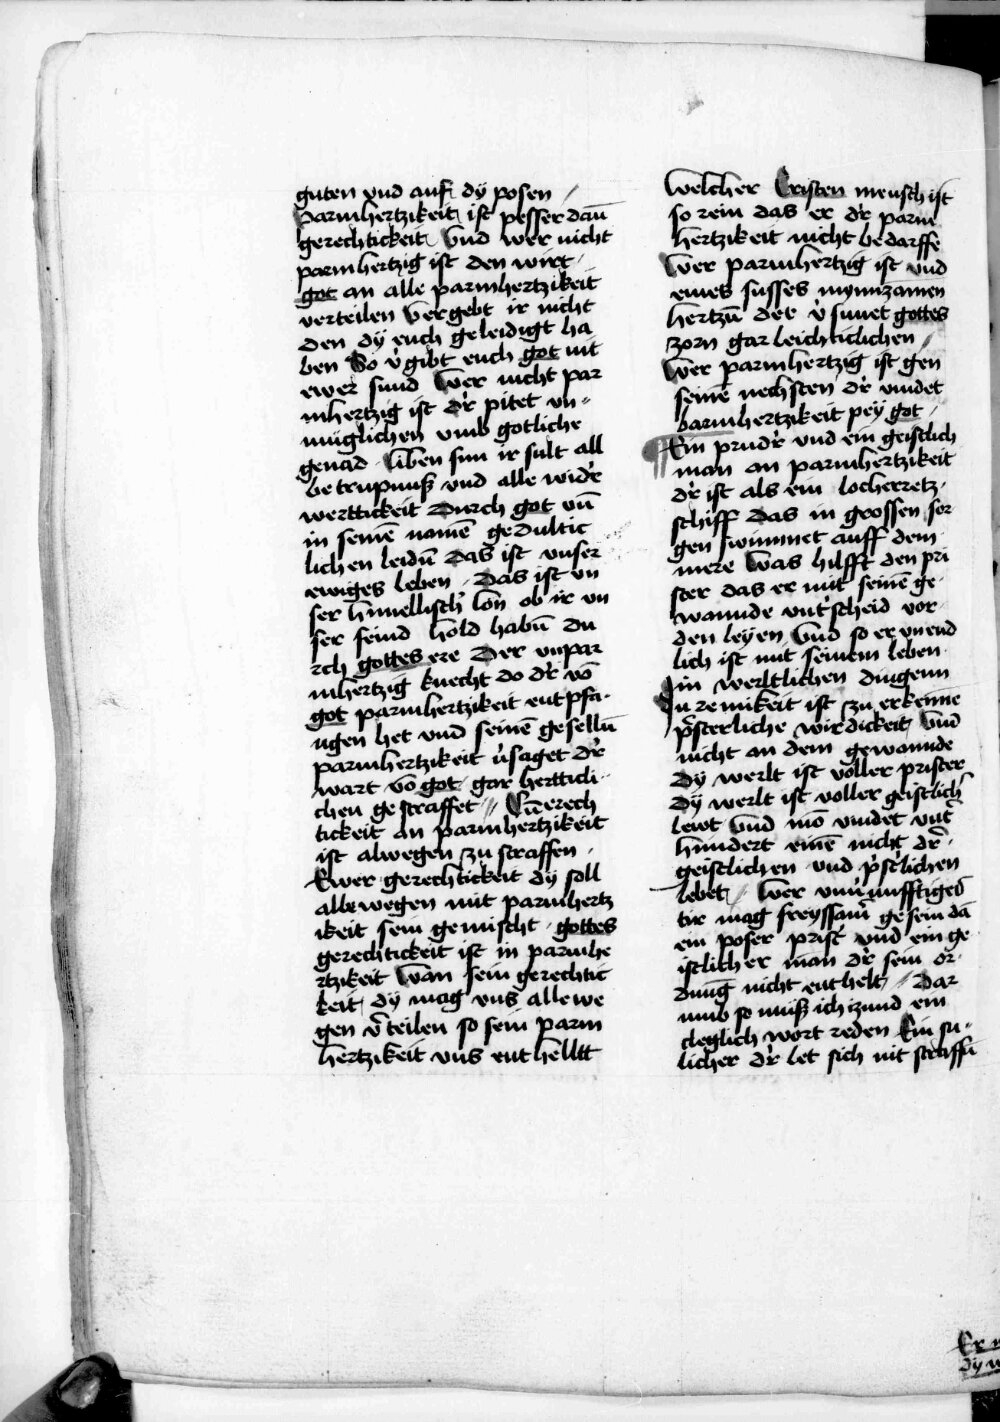 guten vnd auf dÿ posen /
Parmhertzikeit ist pesser dañ
gerechtickeit Vnd wer nicht
parmhertzig ist den wirt
got an alle parmhertzikeit
verteilen Vergebt ir nicht
den dÿ euch geleidigt ha
ben So v̾gibt euch got nit
ewer sund Wer nicht par
mhertzig ist dr̾ pitet vn=
müglichen vmb gotliche
genad liben sun ir sult all
betrupnuß vnd alle widr̾
werttickeit Durch got vñ
in seinẽ namẽ gedultic
lichen leidñ das ist vnser
ewiges leben Das ist vn
ser himellisch̾ lon ob ir vn
ser feind hold habñ du
rch gottes ere Der vnpar
mhertzig knecht do dr̾ võ
got parmhertzikeit entpfa
ngen het vnd seinẽ geselln̄
parmhertzikeit v̾saget dr̾
wart võ got gar hertticli
chen gestraffet // Gerech
tickeit an parmhertzikeit
ist alwegen zu straffen
Ewer gerechtickeit dÿ soll
allewegen mit parmhertz
ikeit sein gemischt gottes
gerechtickeit ist in parmhe
rtzikeit Wan sein gerechtic
keit dÿ mag vns allewe
gen v̾teilen so sein parm
hertzikeit vns enthelltt
Welcher Cristen mensch ist
so rein das er dr̾ parm
hertzikeit nicht bedarffe
Wer parmhertzig ist vnd
eines susses mynnzamen
hertzñ der v̾sunet gottes
zorn gar leichticlichen /
Wer parmhertzig ist gen
seinẽ nechsten dr̾ vindet
barmhertzikeit peÿ got /
Ein prudr̾ vnd ein geistlich
man an parmhertzikeit
dr̾ ist als ein locherretz
schiff das in grossen sor
gen swimmet auff dem
mere Was hilfft den pri
ster das er mit seinẽ ge
wannde vnt̾scheid vor
den leÿen Vnd so er vnend
lich ist mit seinem leben
in werltlichen dingenn
In reinikeit ist zu erkenne
p̾sterliche wirdickeit Vnd
nicht an dem gewannde
Dÿ werlt ist voller prister
Dÿ werlt ist voller geistlich̾
lewt Vnd mõ vindet vnt̾
hundert einẽ nicht dr̾
geistlichen vnd p̾stlichen
lebet / Wer vnu̾nufftiges
tir mag freyssam̾ gesein dã
ein poser prist̾ vnd ein ge
istlicher man dr̾ sein or
dnũg nicht enthelt // Dar
vmb so muß ich izund ein
cleglich wort reden Ein su
licher dr̾ let sich nit straffñ